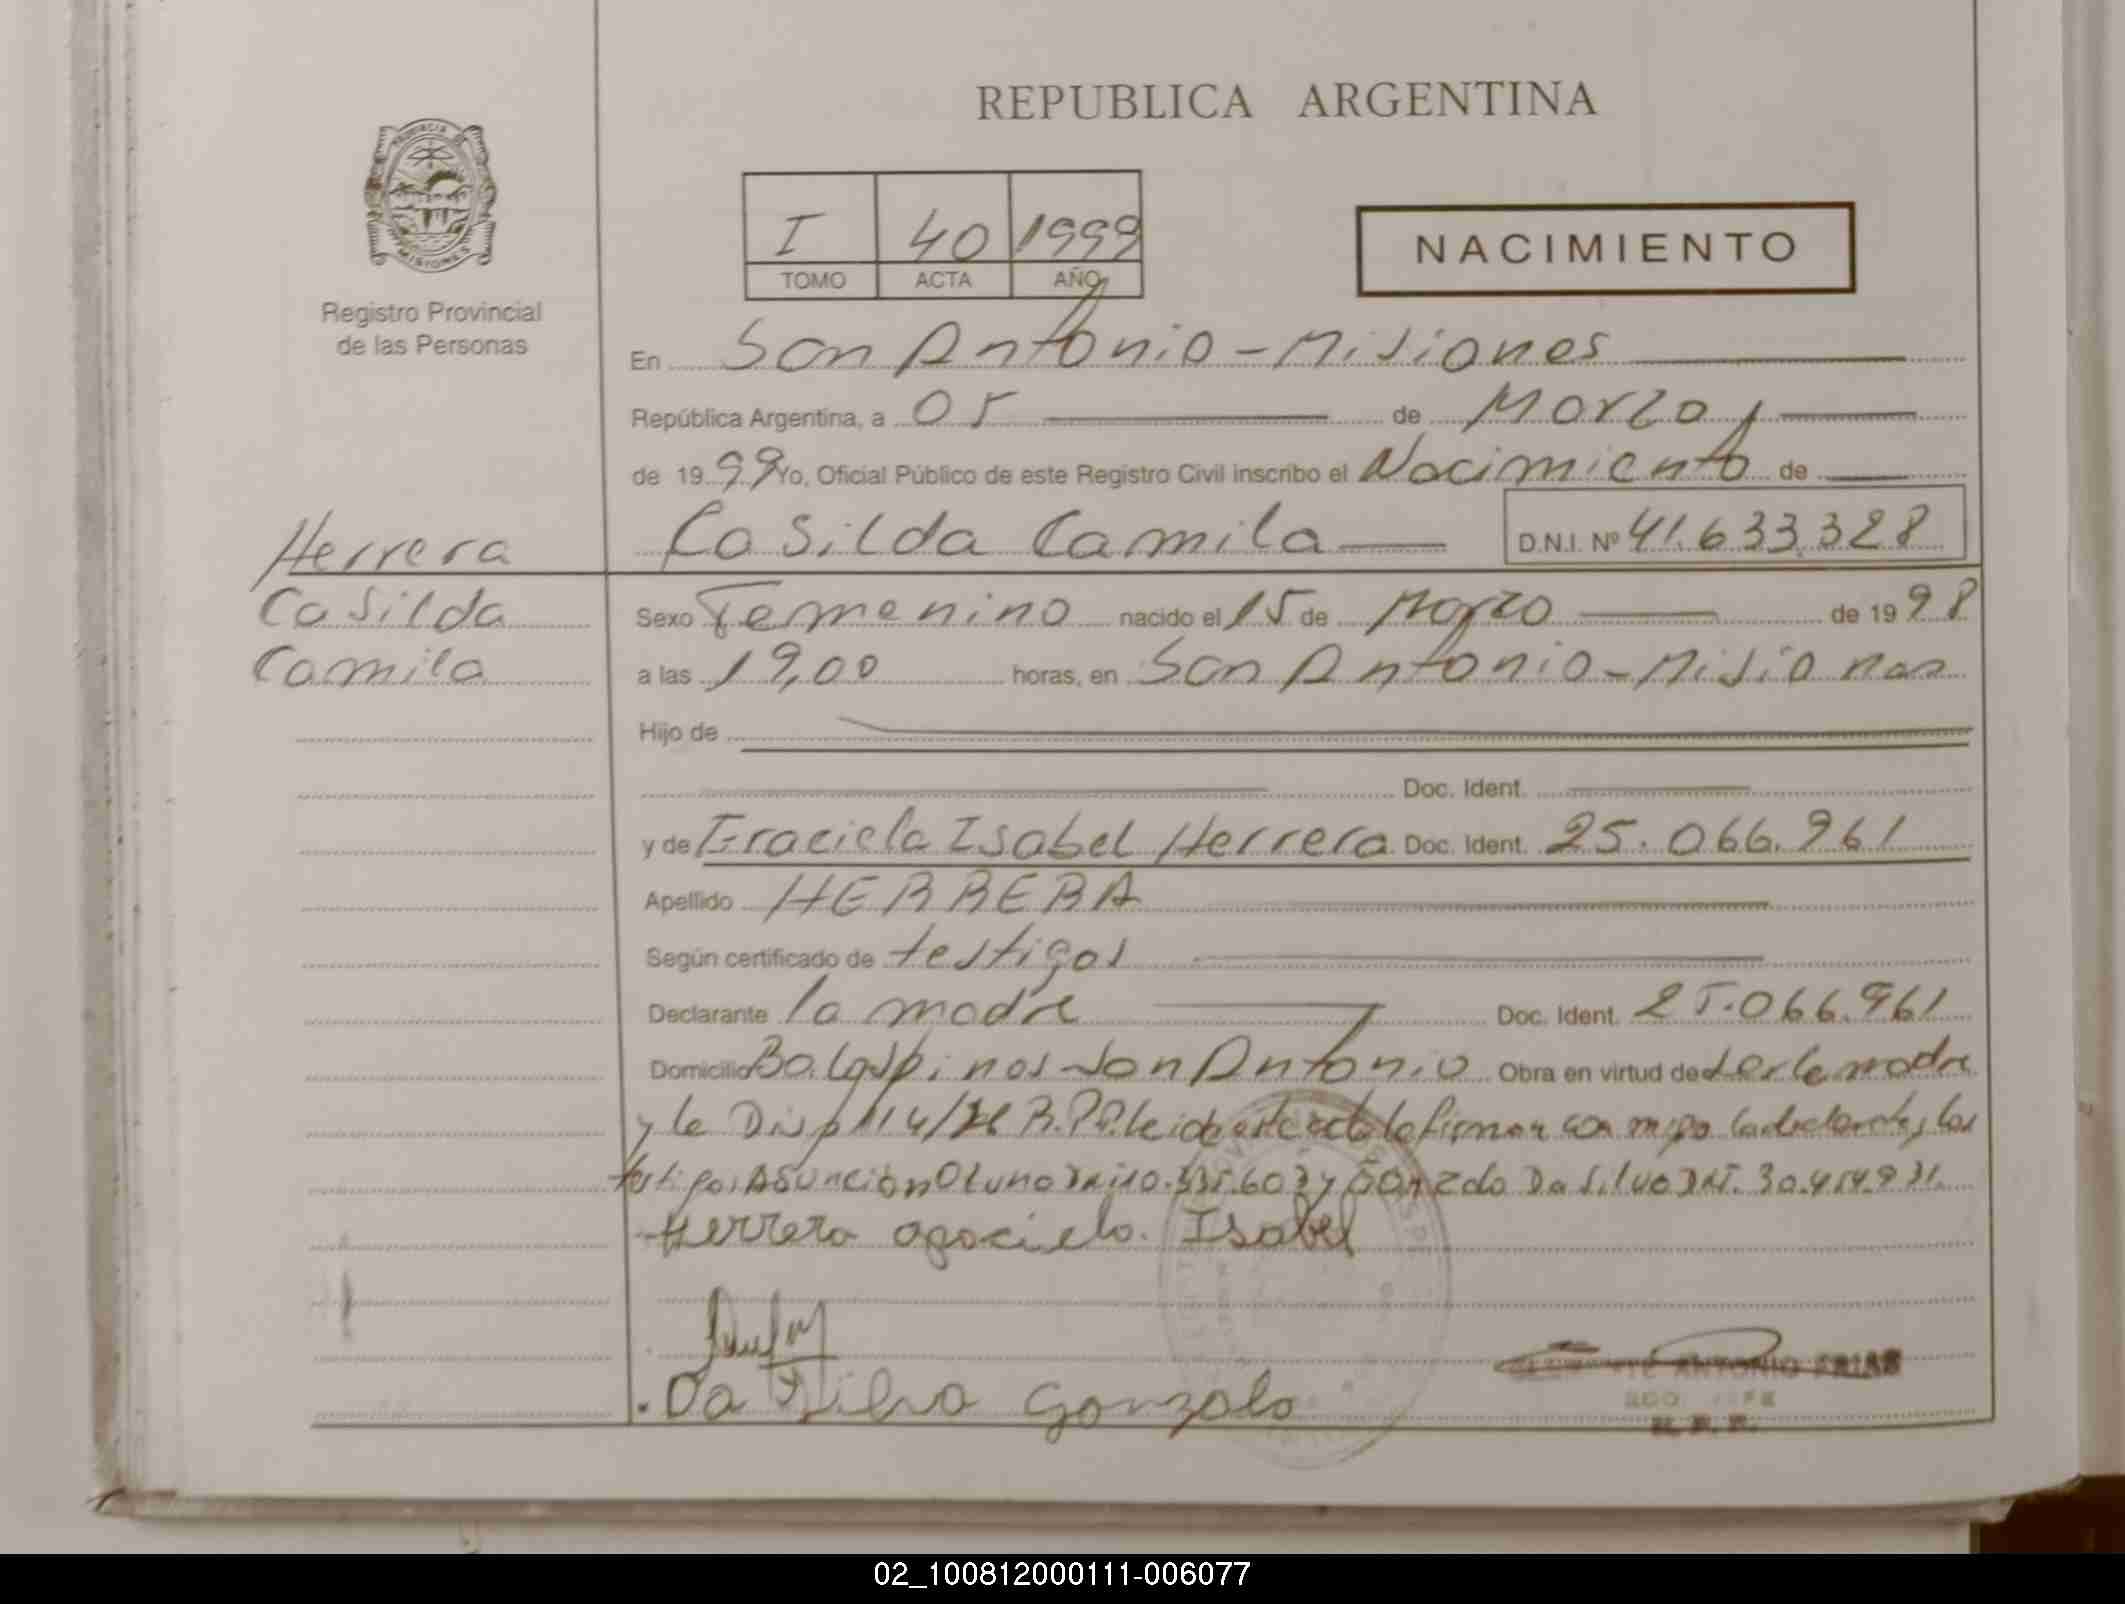 REPUBLICA ARGENTINA
PROVINCIA DE
MISIONES
Registro Provincial
de las Personas
I 40 1999
TOMO ACTA AÑO
NACIMIENTO
En San Antonio - Misiones
República Argentina, a 05 de Marzo
de 1999 Yo, Oficial Público de este Registro Civil inscribo el Nacimiento de
Casilda Camila D.N.I. Nº 41.633.328
Herrera
Casilda
Camila
Sexo Femenino nacido el 15 de Marzo de 1998
a las 19,00 horas, en San Antonio - Misiones
Hijo de
Doc. Ident.
y de Graciela Isabel Herrera Doc. Ident. 25.066.961
Apellido HERRERA
Según certificado de testigos
Declarante la madre Doc. Ident. 25.066.961
Domicilio Bo. Los pinos San Antonio Obra en virtud de ser la madre
y la Disp leida este acta la firman con migo la declarante y los
testigos Asuncion y Gonzalo Da Silva DNI.
Herrera Isabel
Da Silva Gonzalo
ANTONIO FRIAS
02_100812000111-006077